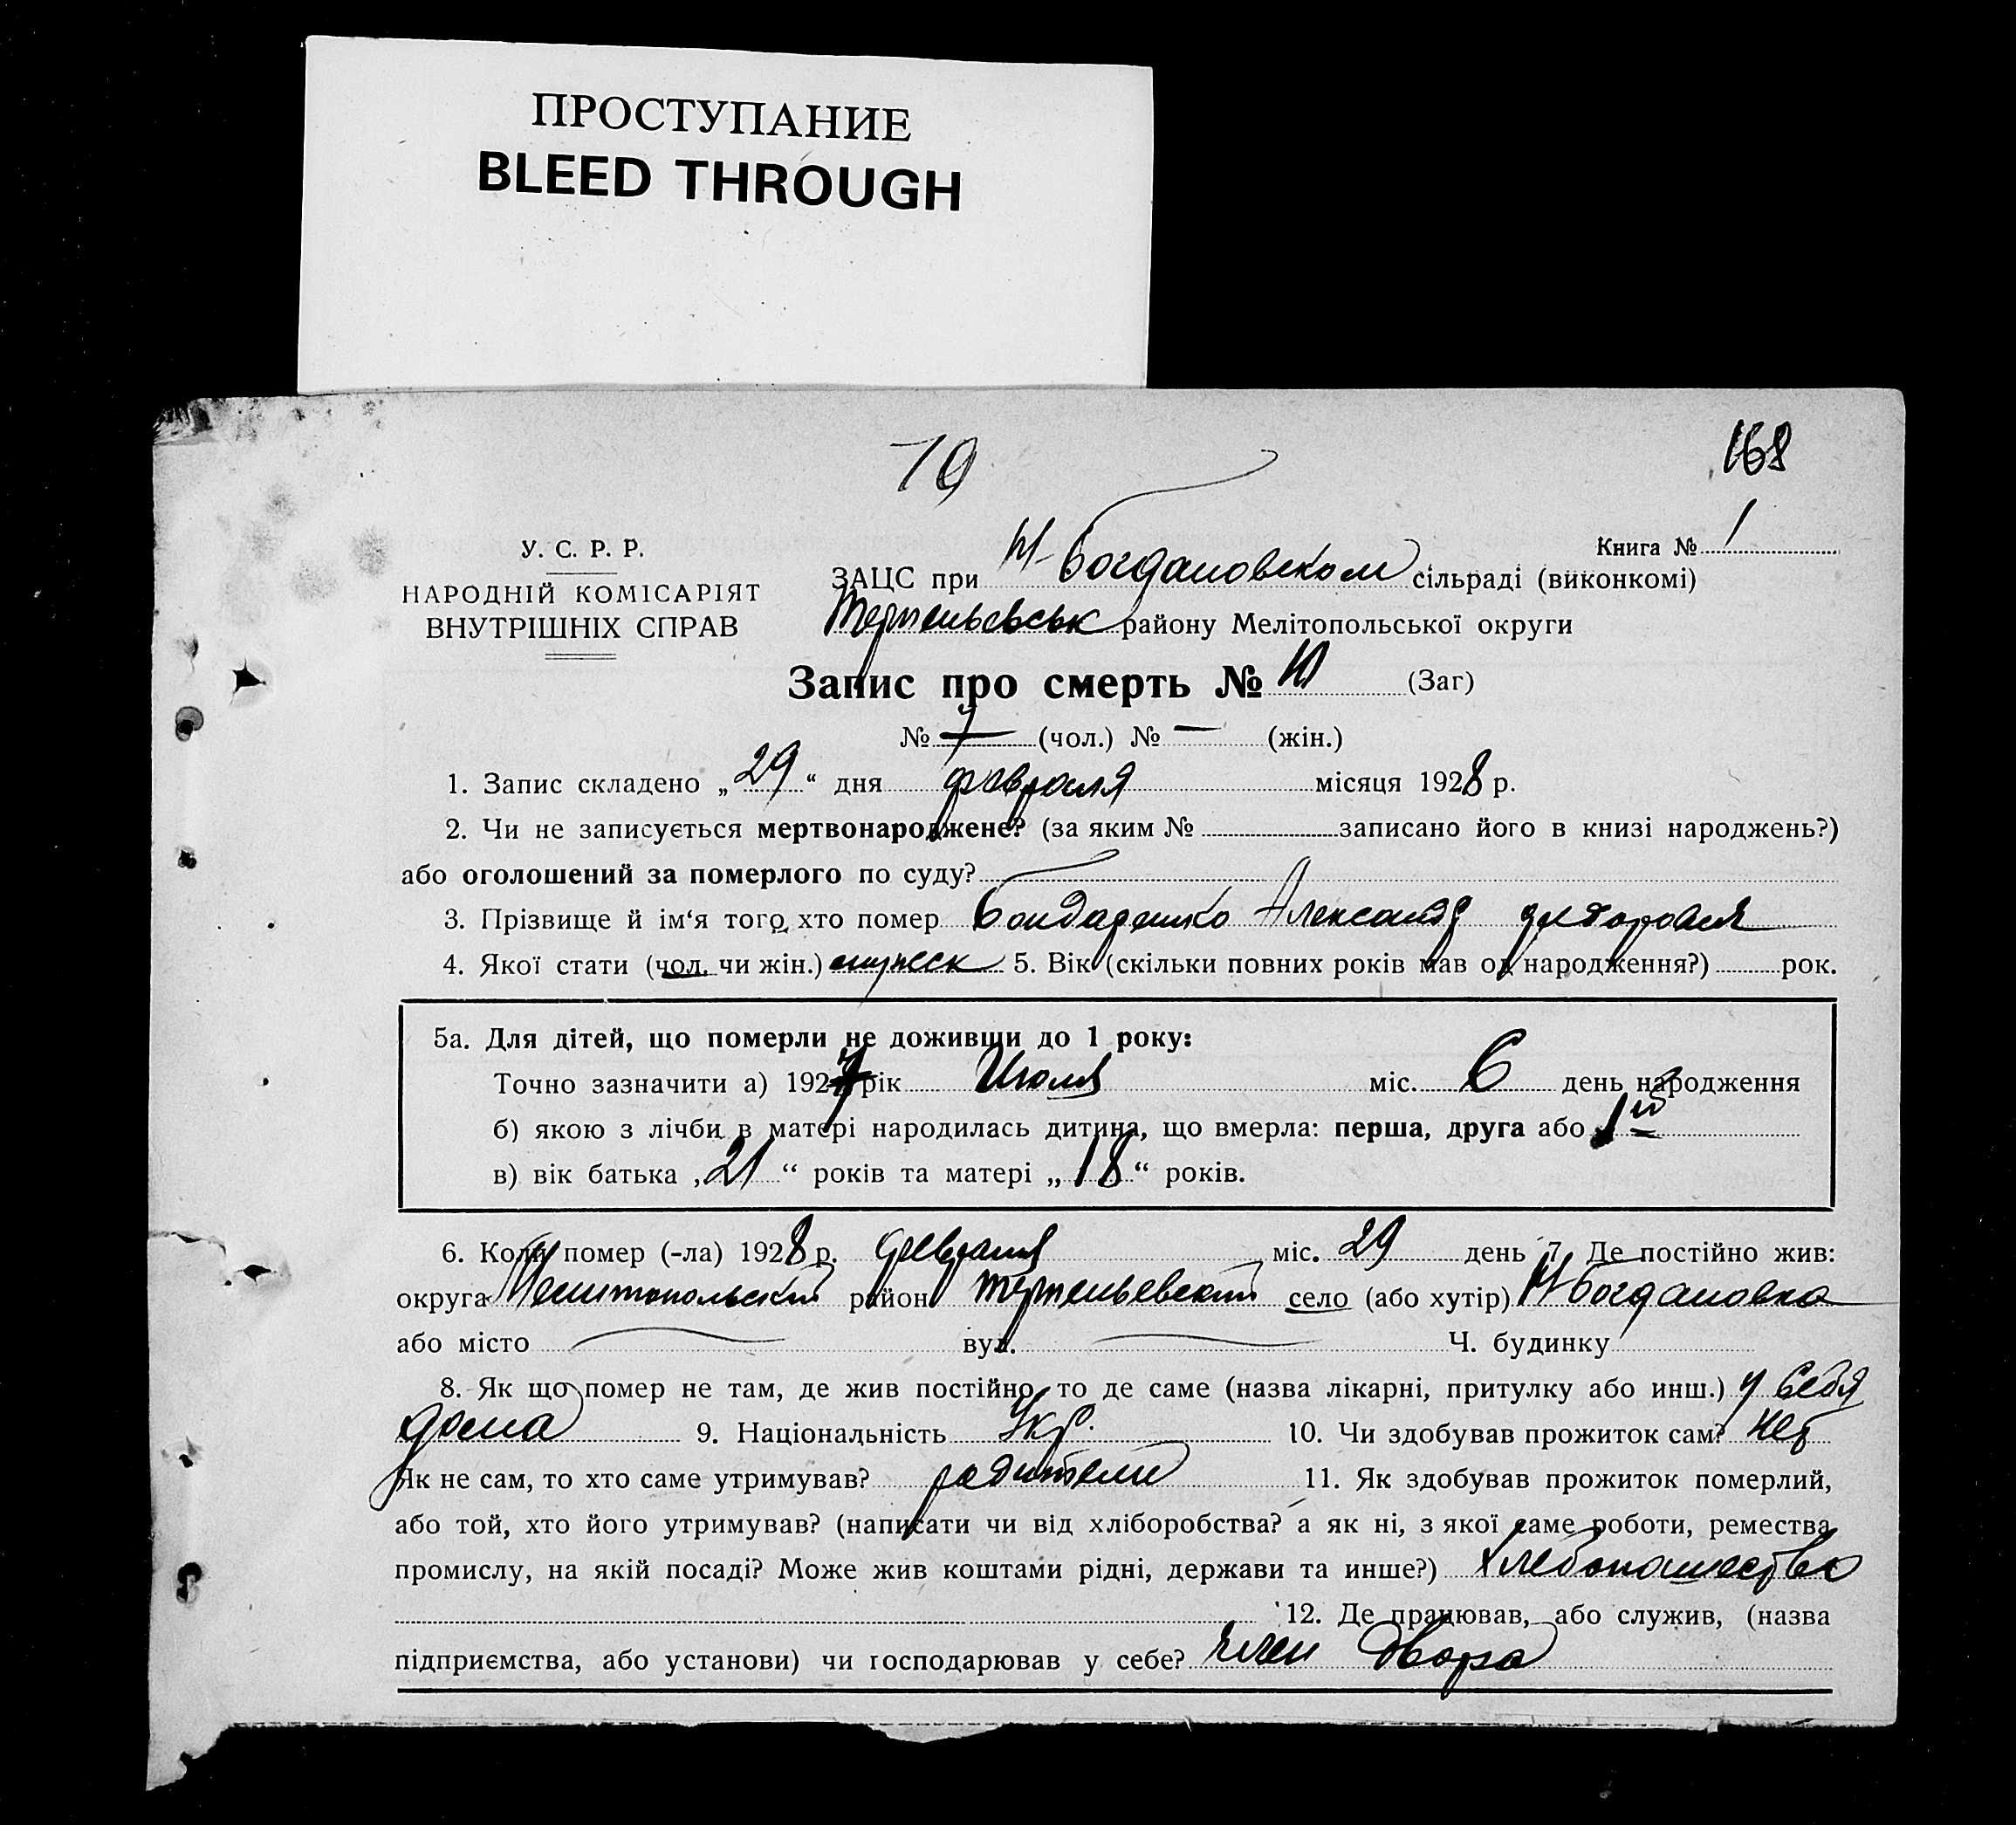 ПРОСТУПАНИЕ
BLEED THROUGH
79
168
Книга № 1
У. С. Р. Р.
НАРОДНІЙ КОМІСАРІЯТ
ВНУТРІШНІХ СПРАВ
ЗАЦС при Н-Богдановском сільраді (виконкомі)
району Мелітопольської округи
Запис про смерть № (Заг)
№ 7 (чол.) № — (жін.)
1. Запис складено „29“ дня февраля місяця 1928 р.
2. Чи не записується мертвонароджене? (за яким № записано його в книзі народжень?)
або оголошений за померлого по суду?
3. Прізвище й ім‘я того, хто помер Бондаренко Александр
4. Якої стати (чол. чи жін.) мужеск 5. Вік (скільки повних років мав од народження?) рок.
5а. Для дітей, що померли не доживши до 1 року:
Точно зазначити а) 1927 рік Июля міс. 6 день народження
б) якою з лічби в матері народилась дитина, що вмерла: перша, друга або 1й
в) вік батька „21“ років та матері „18“ років.
6. Коли помер (-ла) 1928 р. февраля міс. 29 день 7. Де постійно жив:
округа Мелитопольский район село (або хутір) Н Богдановка
або місто вул. Ч. будинку
8. Як що помер не там, де жив постійно, то де саме (назва лікарні, притулку або инш.) у себя
дома 9. Національність Укр. 10. Чи здобував прожиток сам? нет
Як не сам, то хто саме утримував? родители 11. Як здобував прожиток померлий,
або той, хто його утримував? (написати чи від хліборобства? а як ні, з якої саме роботи, ремества
промислу, на якій посаді? Може жив коштами рідні, держави та инше?) хлебопашество
12. Де працював, або служив, (назва
підприємства, або установи) чи господарював у себе? член двора